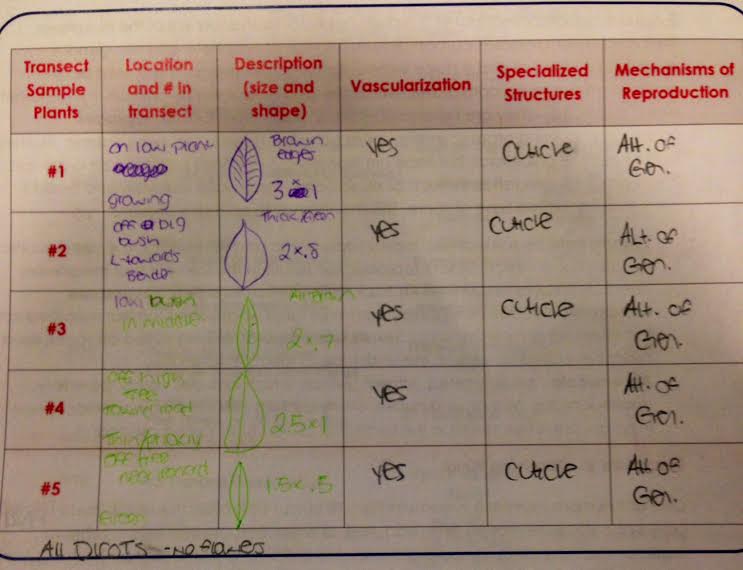 Transect Sample Plants
Location and # in transect
Description (size and shape)
Vascularization
Specialized Structures
Mechanisms of Reproduction
#1
on low plant
growing
Brown
edges
3 x 1
yes
Cuticle
Alt. of
Gen.
#2
off big
bush
Thick/Green
2 x .5
yes
Cuticle
Alt. of
Gen.
#3
low bush
in middle
2 x .7
yes
Cuticle
Alt. of
Gen.
#4
off high
tree
toward road
2.5 x 1
yes
Alt. of
Gen.
#5
off tree
near
Green
1.5 x .5
yes
Cuticle
Alt. of
Gen.
All DICOTS - No flowers